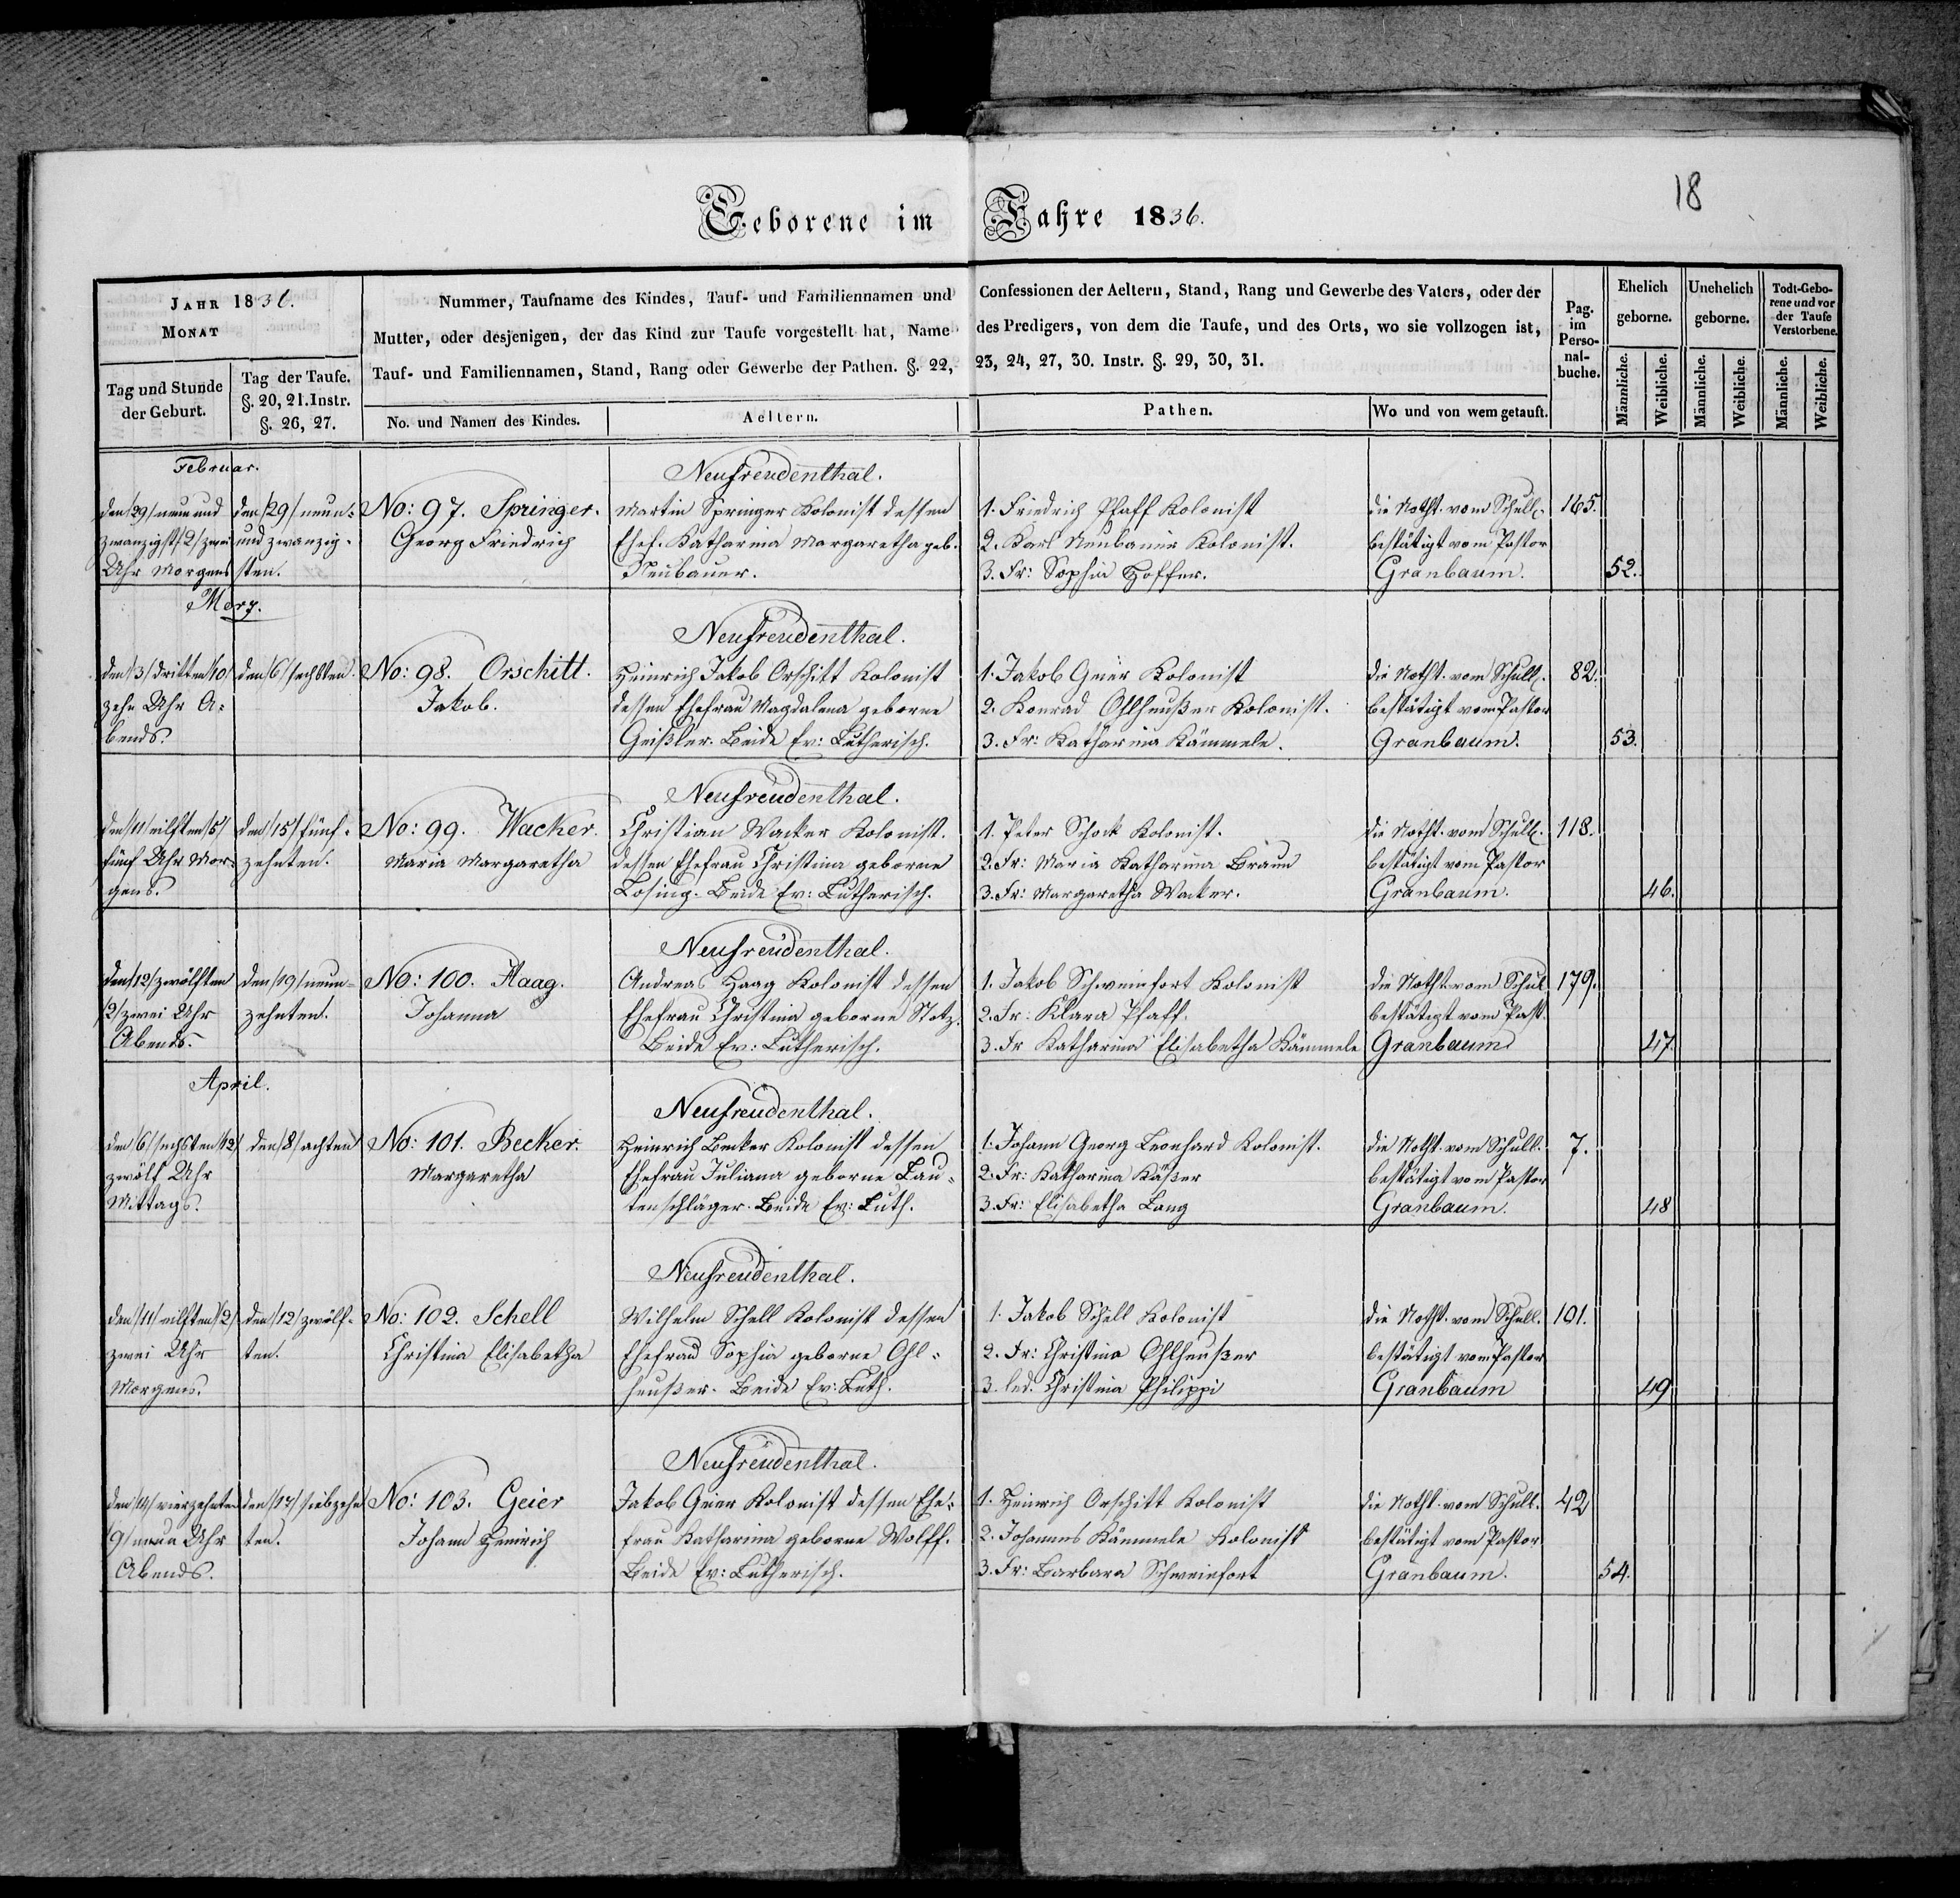 18
Geborene im Jahre 1836.
JAHR 1836.
MONAT
Tag und Stunde
der Geburt.
Tag der Taufe.
§. 20, 21. Instr.
§. 26, 27.
Nummer, Taufname des Kindes, Tauf- und Familiennamen und
Mutter, oder desjenigen, der das Kind zur Taufe vorgestellt hat, Name
Tauf- und Familiennamen, Stand, Rang oder Gewerbe der Pathen. §. 22,
No. und Namen des Kindes.
Aeltern.
Confessionen der Aeltern, Stand, Rang und Gewerbe des Vaters, oder der
des Predigers, von dem die Taufe, und des Orts, wo sie vollzogen ist,
23, 24, 27, 30. Instr. §. 29, 30, 31.
Pathen.
Wo und von wem getauft.
Pag.
im
Perso-
nal-
buche.
Ehelich
geborne.
Unehelich
geborne.
Todt-Gebo-
rene und vor
der Taufe
Verstorbene.
Männliche.
Weibliche.
Männliche.
Weibliche.
Männliche.
Weibliche.
Februar.
den /29/ neun und
zwanzigst /2/ zwei
Uhr Morgens
den /29/ neun-
und zwanzig-
sten.
No: 97. Springer.
Georg Friedrich
Neufreudenthal.
Martin Springer Kolonist dessen
Ehef. Katharina Margaretha geb.
Neubauer.
1. Friedrich Pfaff Kolonist
2. Karl Neubauer Kolonist.
3. Fr: Sophia Hoffer.
die Notht. vom Schull.
bestätigt vom Pastor
Granbaum.
165.
52.
Merz.
den /3/ dritten /10/
zehn Uhr A-
bends.
den /6/ sechsten.
No: 98. Orschitt.
Jakob.
Neufreudenthal.
Heinrich Jakob Orschitt Kolonist
dessen Ehefrau Magdalena geborne
Geißler. Beide Ev: Lutherisch.
1. Jakob Geier Kolonist
2. Konrad Ohlheußer Kolonist.
3. Fr: Katharina Kämmele.
die Notht. vom Schull.
bestätigt vom Pastor
Granbaum.
82.
53.
den /11/ eilften /5/
fünf Uhr Mor-
gens.
den /15/ fünf-
zehnten.
No: 99. Wacker.
Maria Margaretha
Neufreudenthal.
Christian Wacker Kolonist.
dessen Ehefrau Christina geborne
Losing. Beide Ev: Lutherisch.
1. Peter Schock Kolonist.
2. Fr: Maria Katharina Braun
3. Fr: Margaretha Wacker.
die Notht. vom Schull.
bestätigt vom Pastor
Granbaum.
118.
46.
den /12/ zwölften
/2/ zwei Uhr
Abends.
den /19/ neun-
zehnten.
No: 100. Haag.
Johanna
Neufreudenthal.
Andreas Haag Kolonist dessen
Ehefrau Christina geborne Stotz.
Beide Ev: Lutherisch.
1. Jakob Schweinfort Kolonist
2. Fr: Klara Pfaff.
3. Fr Katharina Elisabetha Kämmele
die Notht. vom Schul
bestätigt vom Past.
Granbaum
179.
47.
April.
den /6/ sechsten /12/
zwölf Uhr
Mittags.
den /8/ achten
No: 101. Becker.
Margaretha
Neufreudenthal.
Heinrich Becker Kolonist dessen
Ehefrau Juliana geborne Lau-
tenschläger. Beide Ev: Luth.
1. Johann Georg Leonhard Kolonist.
2. Fr: Katharina Käßer
3. Fr: Elisabetha Lang
die Notht. vom Schull.
bestätigt vom Pastor
Granbaum.
7.
48
den /11/ eilften /2/
zwei Uhr
Morgens.
den /12/ zwölf-
ten.
No: 102. Schell
Christina Elisabetha
Neufreudenthal.
Wilhelm Schell Kolonist dessen
Ehefrau Sophia geborne Ohl-
heußer. Beide Ev: Luth.
1. Jakob Schell Kolonist
2. Fr: Christina Ohlheußer
3. led. Christina Philippi
die Notht. vom Schull.
bestätigt vom Pastor
Granbaum
101.
49
den /14/ vierzehnten
/9/ neun Uhr
Abends.
den /17/ siebzehn
ten.
No: 103. Geier
Johann Heinrich
Neufreudenthal.
Jakob Geier Kolonist dessen Ehe-
frau Katharina geborne Wolff.
Beide Ev: Lutherisch.
1. Heinrich Orschitt Kolonist
2. Johannes Kämmele Kolonist
3. Fr: Barbara Schweinfort
die Notht. vom Schull.
bestätigt vom Pastor
Granbaum.
42
54.